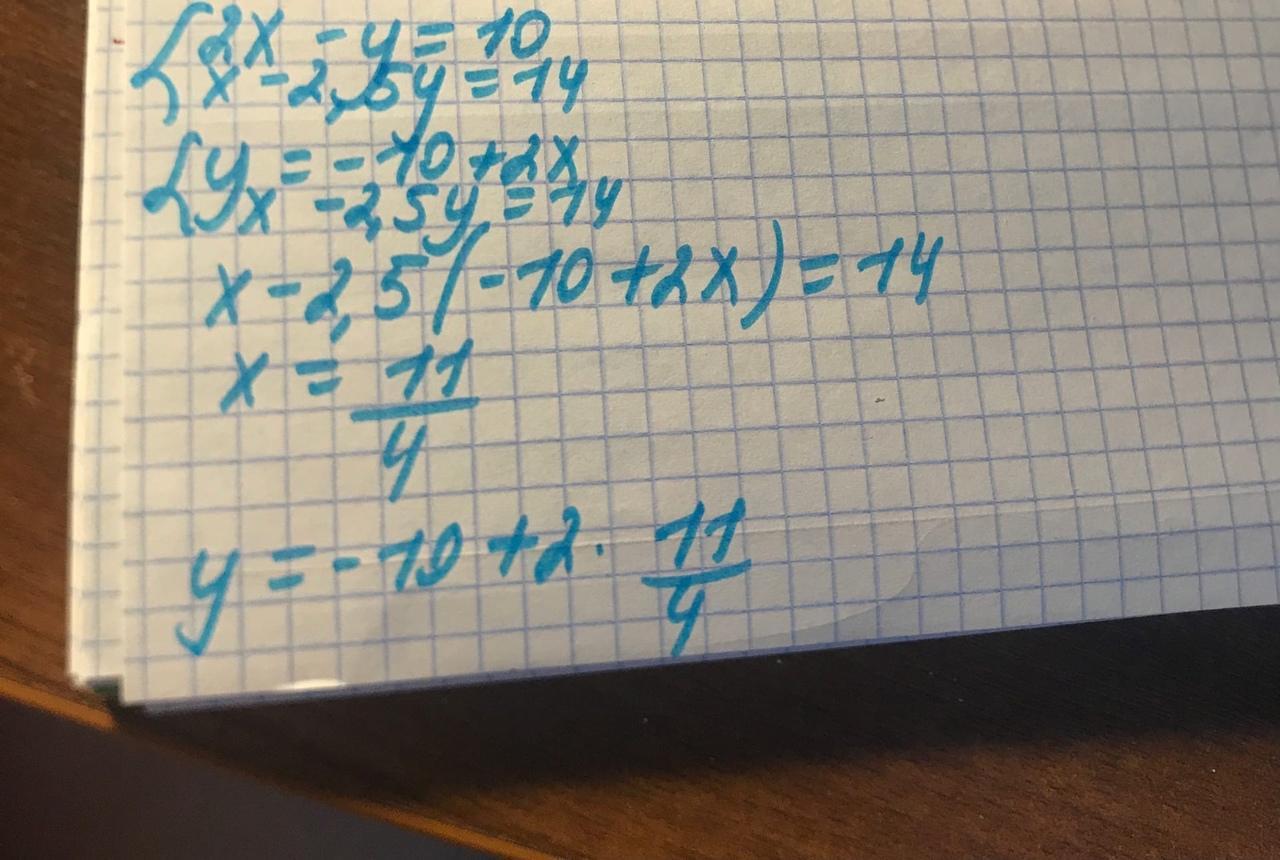 {2x - y = 10
x - 2,5y = 14
{y = -10 + 2x
x - 2,5y = 14
x - 2,5(-10 + 2x) = 14
x = 11/4
y = -10 + 2 · 11/4